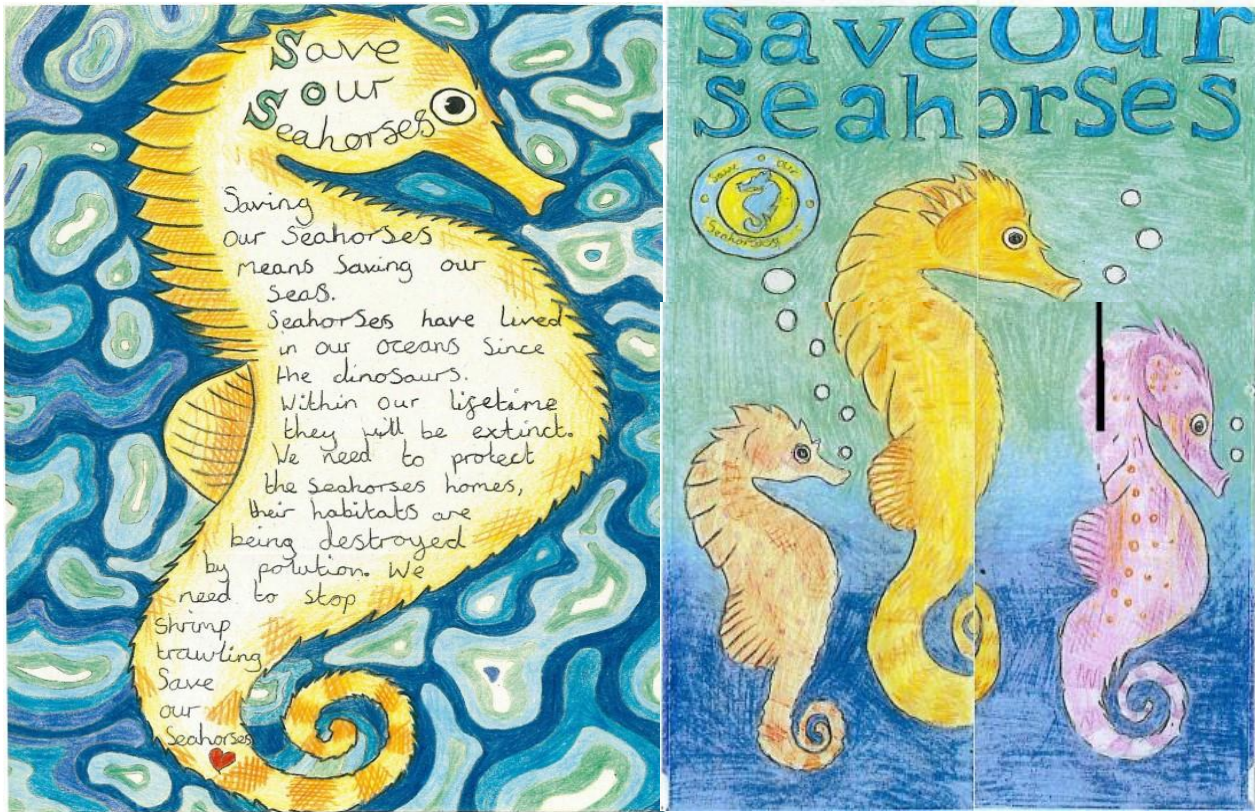 Save
Our
Seahorses
Saving
our Seahorses
means Saving our
Seas.
Seahorses have lived
in our oceans Since
the dinosaurs.
Within our lifetime
they will be extinct.
We need to protect
the seahorses homes,
their habitats are
being destroyed
by polution. We
need to stop
Shrimp
trawling
Save
our
Seahorses
save our
seahorses
Save our
Seahorses